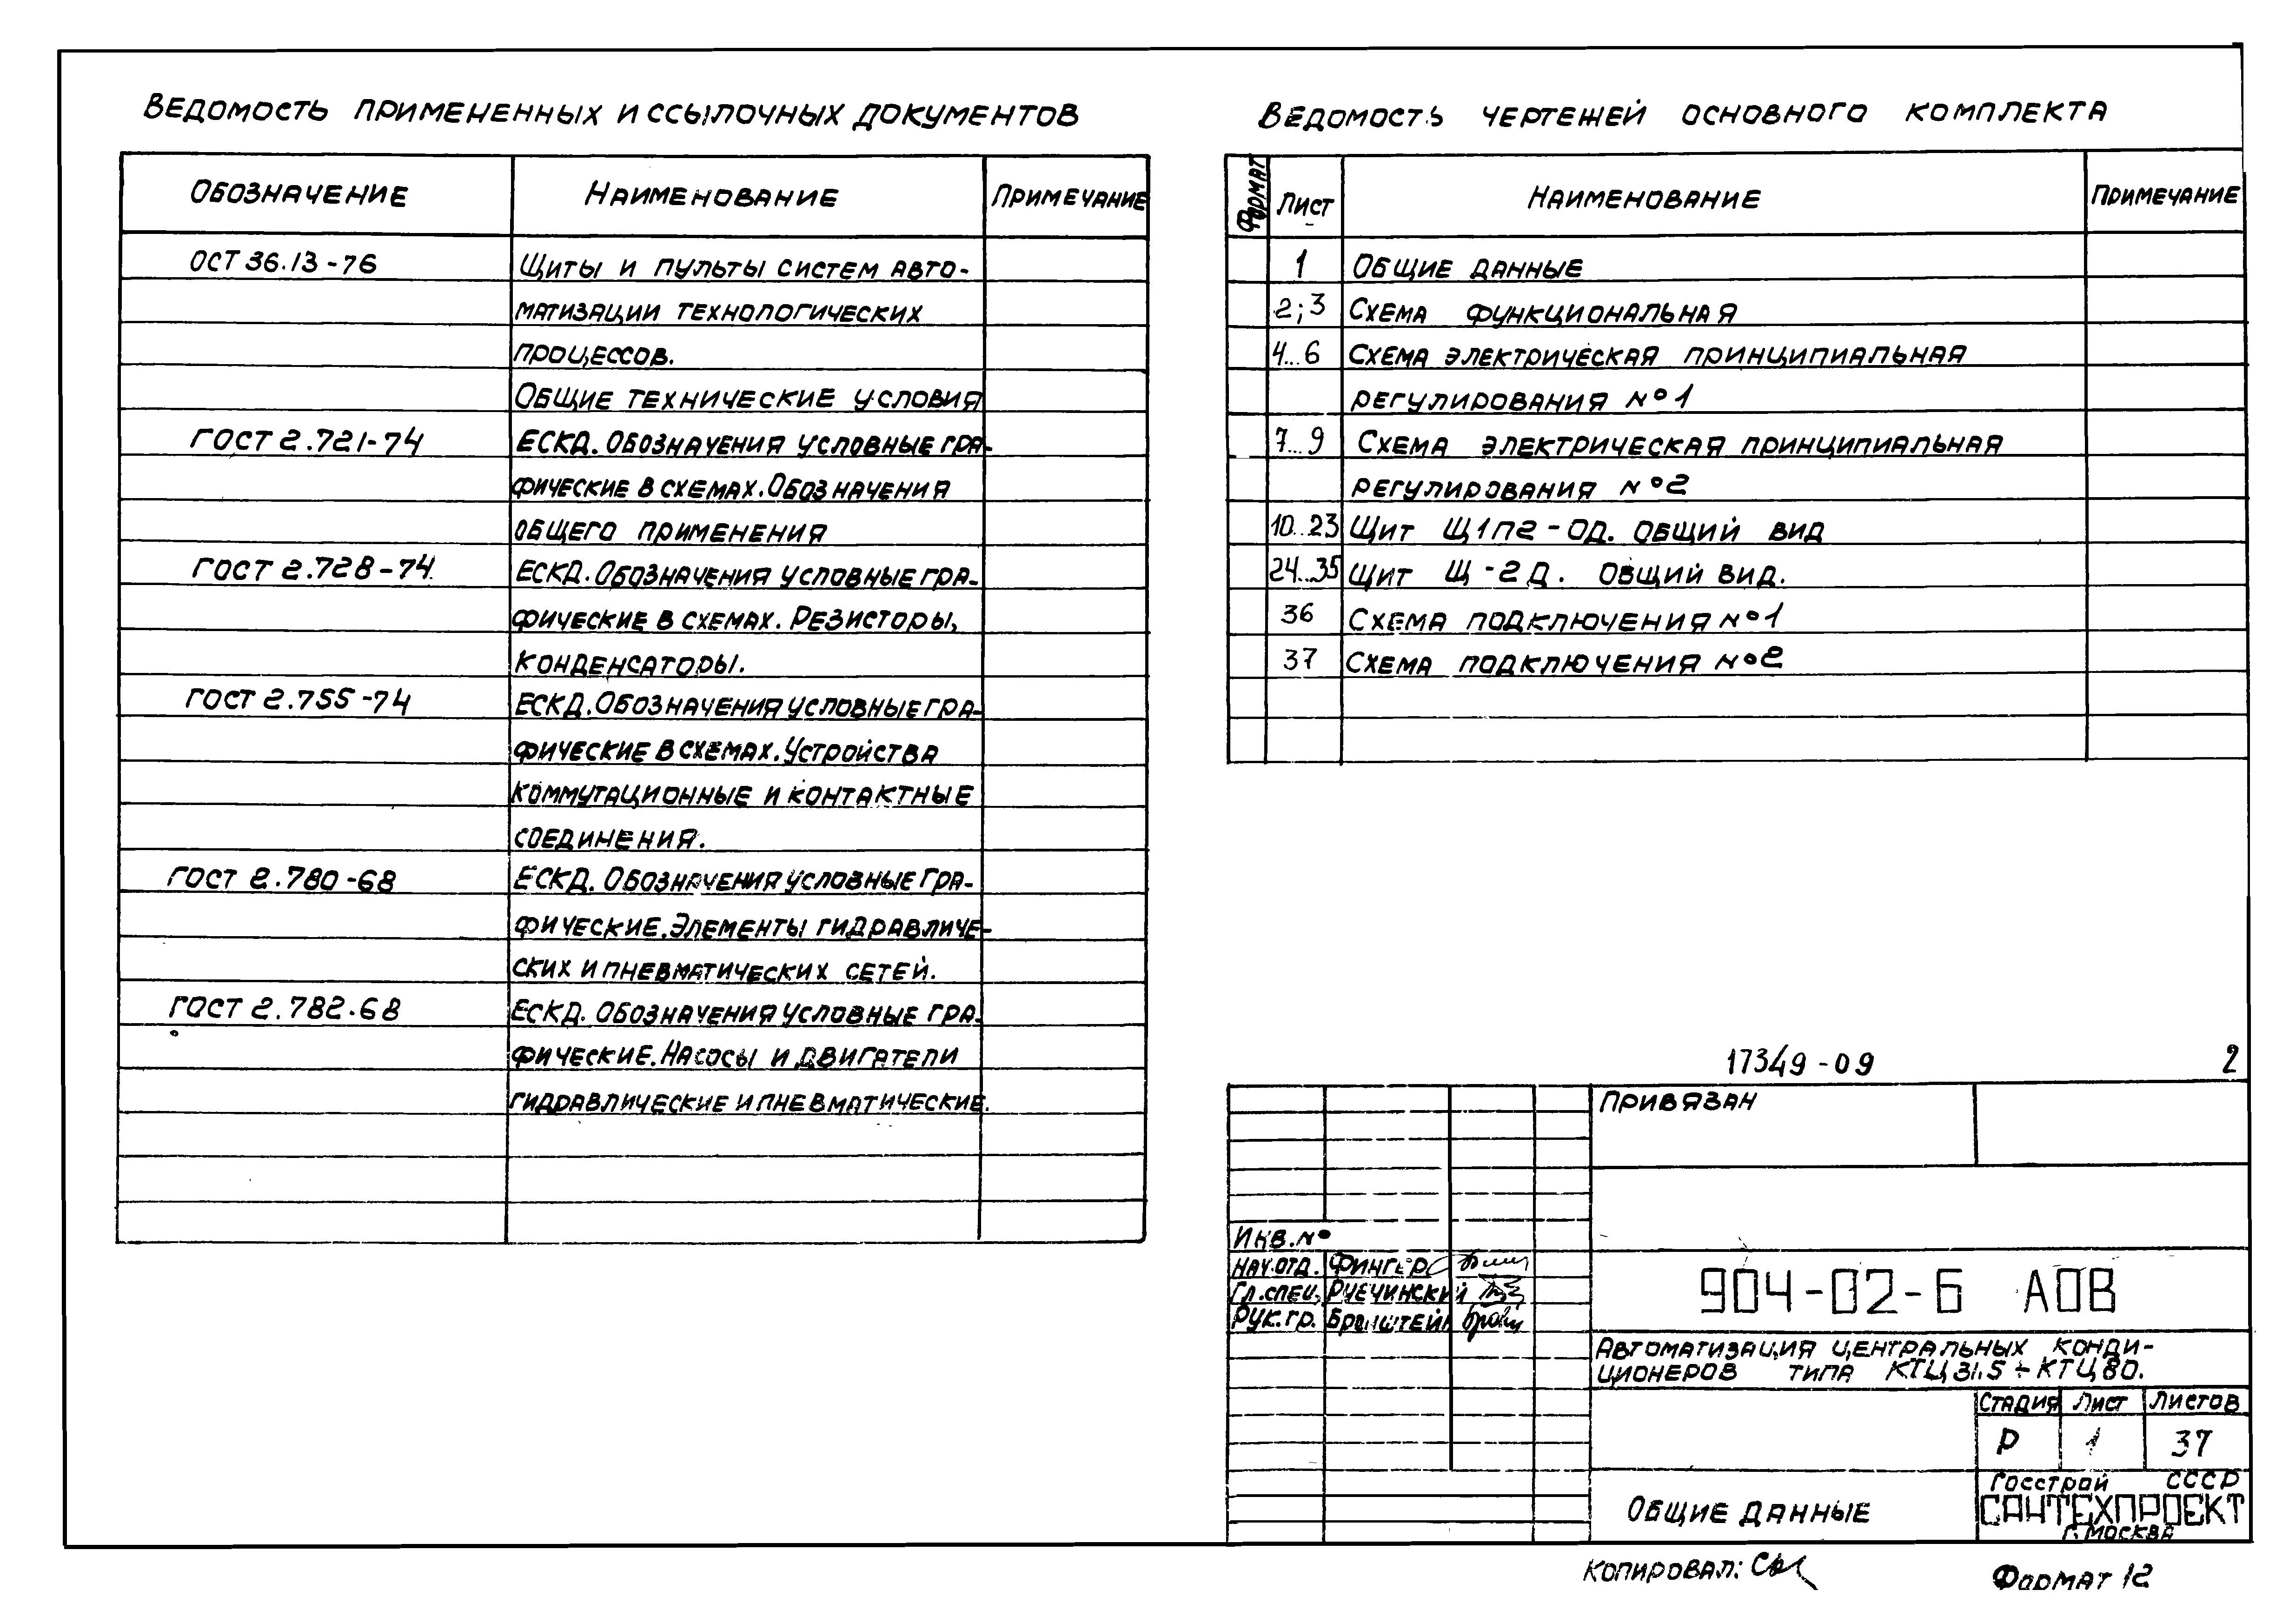 Ведомость примененных и ссылочных документов
Обозначение Наименование Примечание
ОСТ 36.13-76 Щиты и пульты систем авто-
матизации технологических
процессов.
Общие технические условия
ГОСТ 2.721-74 ЕСКД. Обозначения условные гра-
фические в схемах. Обозначения
общего применения
ГОСТ 2.728-74 ЕСКД. Обозначения условные гра-
фические в схемах. Резисторы,
конденсаторы.
ГОСТ 2.755-74 ЕСКД. Обозначения условные гра-
фические в схемах. Устройства
коммутационные и контактные
соединения.
ГОСТ 2.780-68 ЕСКД. Обозначения условные гра-
фические. Элементы гидравличе-
ских и пневматических сетей.
ГОСТ 2.782-68 ЕСКД. Обозначения условные гра-
фические. Насосы и двигатели
гидравлические и пневматические.
Ведомость чертежей основного комплекта
Формат Лист Наименование Примечание
1 Общие данные
2; 3 Схема функциональная
4...6 Схема электрическая принципиальная
регулирования №1
7...9 Схема электрическая принципиальная
регулирования №2
10...23 Щит Щ1П2-ОД. Общий вид
24...35 Щит Щ-2Д. Общий вид.
36 Схема подключения №1
37 Схема подключения №2
17349-09 2
Привязан
Инв.№
Нач.отд. Фингер
Гл.спец. Рчечинский
Рук.гр. Бронштейн
904-02-6 АОВ
Автоматизация центральных конди-
ционеров типа КТЦ 31.5÷КТЦ 80.
Стадия Лист Листов
Р 1 37
Общие данные
Госстрой СССР
САНТЕХПРОЕКТ
г. Москва
Копировал:
Формат 12